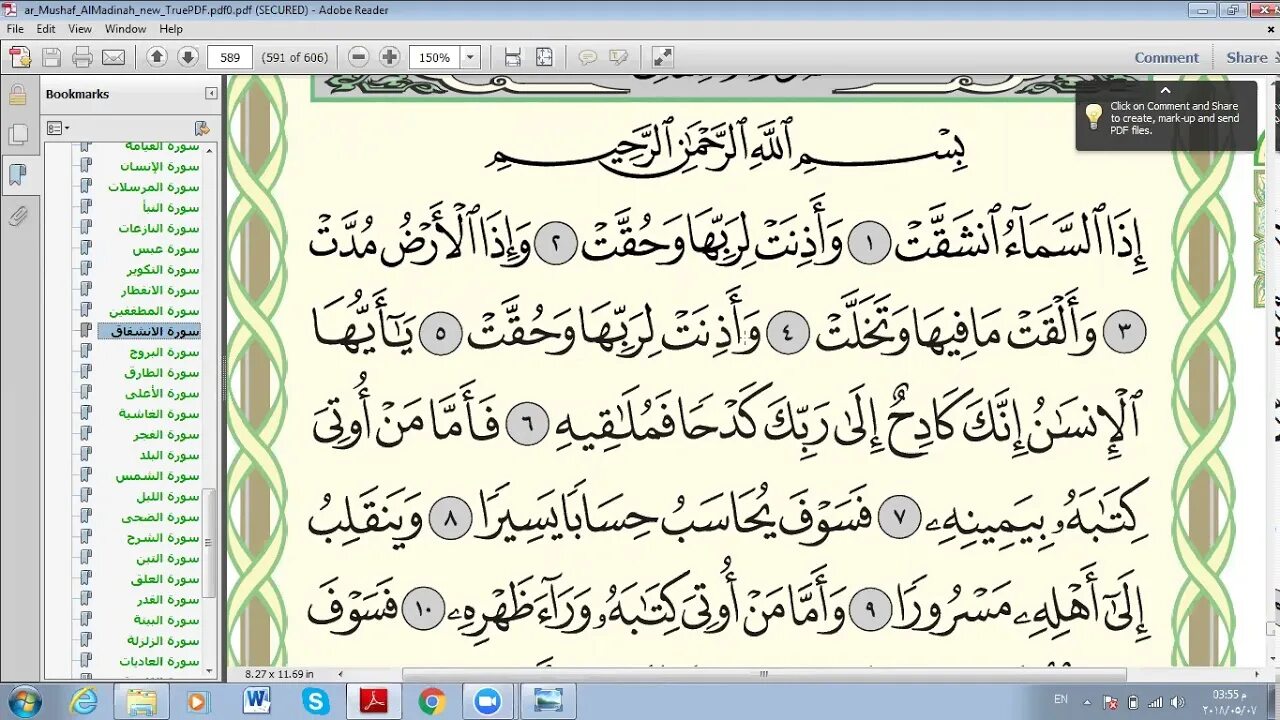 ar_Mushaf_AlMadinah_new_TruePDF.pdf0.pdf (SECURED) - Adobe Reader
File Edit View Window Help
589 (591 of 606) 150% Comment Share
Bookmarks
Click on Comment and Share
to create, mark-up and send
PDF files.
سورة القيامة
سورة الإنسان
سورة المرسلات
سورة النبأ
سورة النازعات
سورة عبس
سورة التكوير
سورة الانفطار
سورة المطففين
سورة الانشقاق
سورة البروج
سورة الطارق
سورة الأعلى
سورة الغاشية
سورة الفجر
سورة البلد
سورة الشمس
سورة الليل
سورة الضحى
سورة الشرح
سورة التين
سورة العلق
سورة القدر
سورة البينة
سورة الزلزلة
سورة العاديات
بِسْمِ ٱللَّهِ ٱلرَّحْمَٰنِ ٱلرَّحِيمِ
إِذَا ٱلسَّمَآءُ ٱنشَقَّتْ ١ وَأَذِنَتْ لِرَبِّهَا وَحُقَّتْ ٢ وَإِذَا ٱلْأَرْضُ مُدَّتْ
٣ وَأَلْقَتْ مَا فِيهَا وَتَخَلَّتْ ٤ وَأَذِنَتْ لِرَبِّهَا وَحُقَّتْ ٥ يَٰٓأَيُّهَا
ٱلْإِنسَٰنُ إِنَّكَ كَادِحٌ إِلَىٰ رَبِّكَ كَدْحًا فَمُلَٰقِيهِ ٦ فَأَمَّا مَنْ أُوتِىَ
كِتَٰبَهُۥ بِيَمِينِهِۦ ٧ فَسَوْفَ يُحَاسَبُ حِسَابًا يَسِيرًا ٨ وَيَنقَلِبُ
إِلَىٰٓ أَهْلِهِۦ مَسْرُورًا ٩ وَأَمَّا مَنْ أُوتِىَ كِتَٰبَهُۥ وَرَآءَ ظَهْرِهِۦ ١٠ فَسَوْفَ
8.27 x 11.69 in
EN
03:55 م
٢٠١٨/٠٥/٠٧